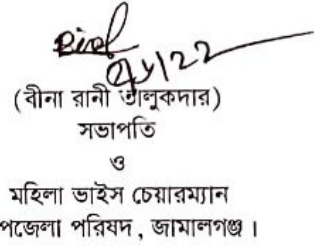 (বীনা রানী তালুকদার)
সভাপতি
ও
মহিলা ভাইস চেয়ারম্যান
পজেলা পরিষদ, জামালগঞ্জ।